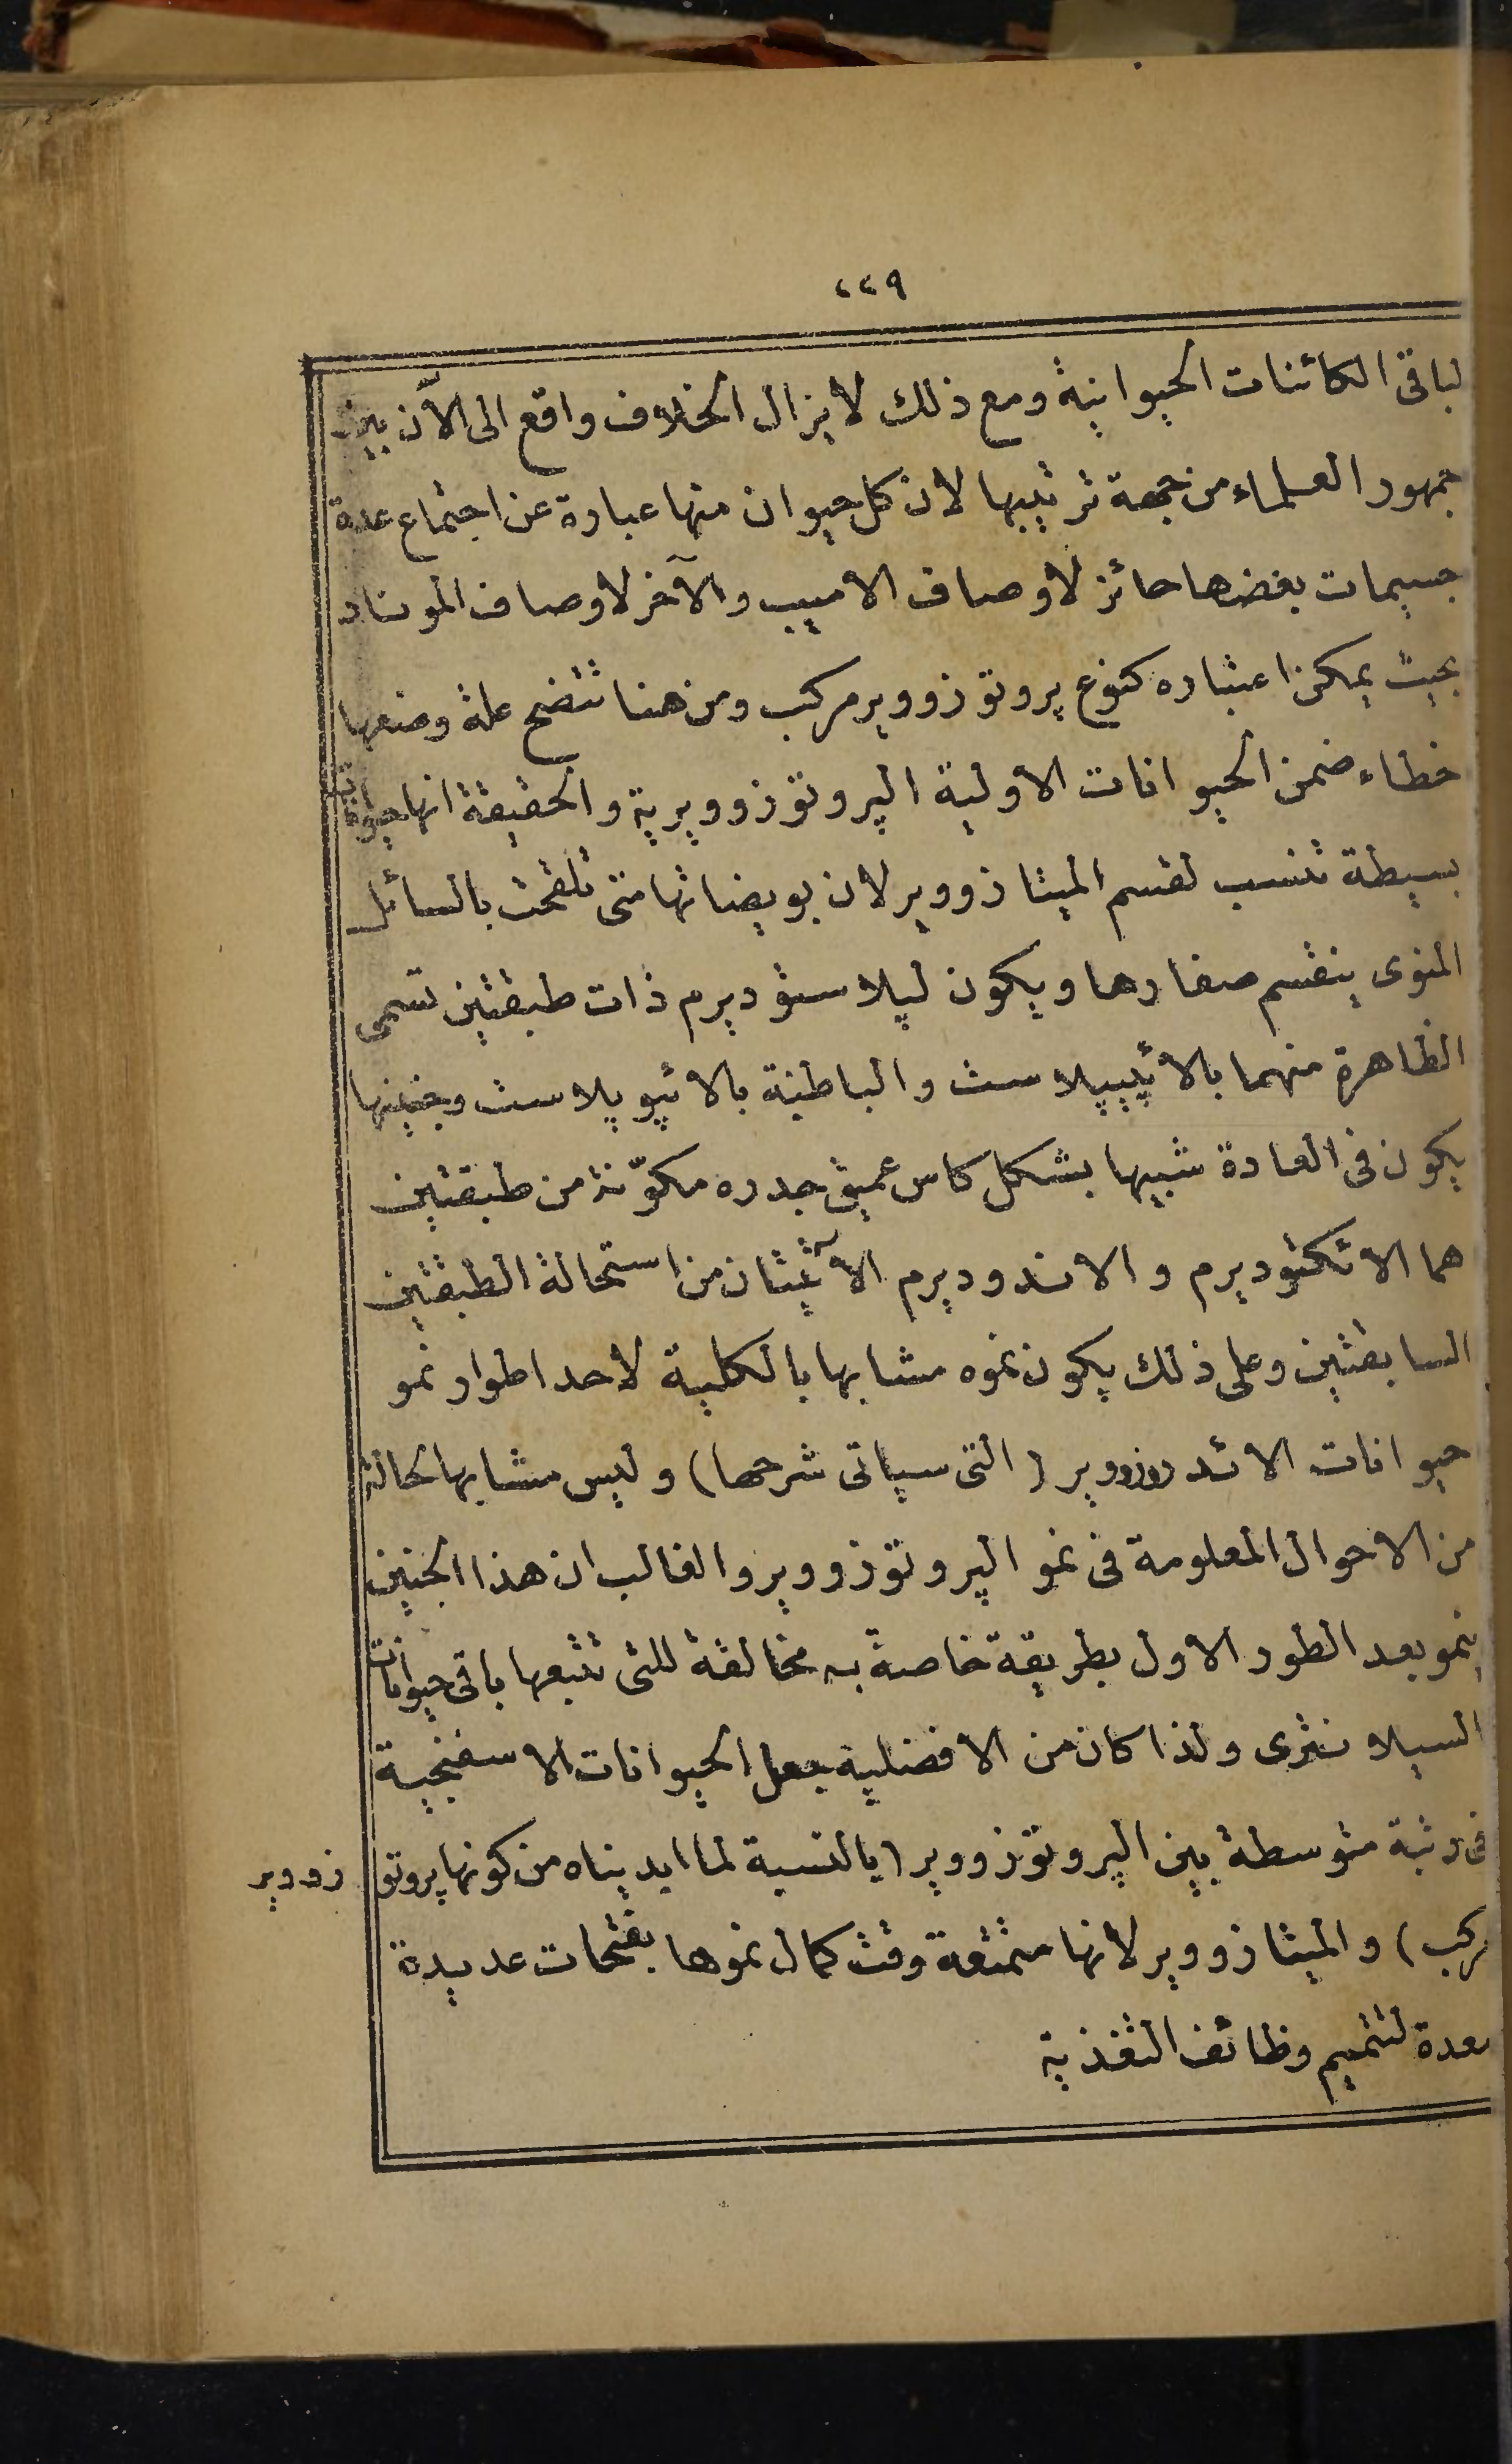 ٤٤٩
لباقى الكائنات الحيوانية ومع ذلك لا يزال الخلاف واقع الى الآن بين
جمهور العلماء من جهة ترتيبها لان كل حيوان منها عبارة عن اجتماع عدة
جسيمات بعضها حائز لاوصاف الاميب والآخر لاوصاف الموناد
بحيث يمكن اعتباره كنوع پروتوزووير مركب ومن هنا تتضح علة وضعها
خطاء ضمن الحيوانات الاولية الپروتوزوويرية والحقيقة انها حيوانات
بسيطة تنسب لقسم الميتازووير لان بويضاتها متى تلقحت بالسائل
المنوى ينقسم صفارها ويكون لپلاستوديرم ذات طبقتين تسمى
الظاهرة منهما بالائپيپلاست والباطنة بالائپوپلاست وجنينها
يكون فى العادة شبيها بشكل كاس عميق جدره مكوّنة من طبقتين
هما الائكتوديرم والاندوديرم الآتيتان من استحالة الطبقتين
السابقتين وعلى ذلك يكون نموه مشابها بالكلية لاحد اطوار نمو
حيوانات الائدروزووير (التى سياتى شرحها) وليس مشابها لحالة
من الاحوال المعلومة فى نمو الپروتوزووير والغالب ان هذا الجنين
ينمو بعد الطور الاول بطريقة خاصة به مخالفة للتى تتبعها باقى حيوانات
السيلانترى ولذا كان من الافضلية جعل الحيوانات الاسفنجية
فى رتبة متوسطة بين الپروتوزووير (بالنسبة لما ابديناه من كونها پروتوزووير
مركب) والميتازووير لانها متمتعة وقت كمال نموها بفتحات عديدة
معدة لتتميم وظائف التغذية